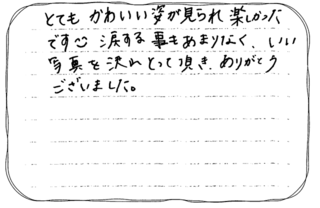 とても かわいい姿が見られ 楽しかった
です☺ 涙する事もあまりなく、いい
写真を 決れとって頂き、ありがとう
ございました。